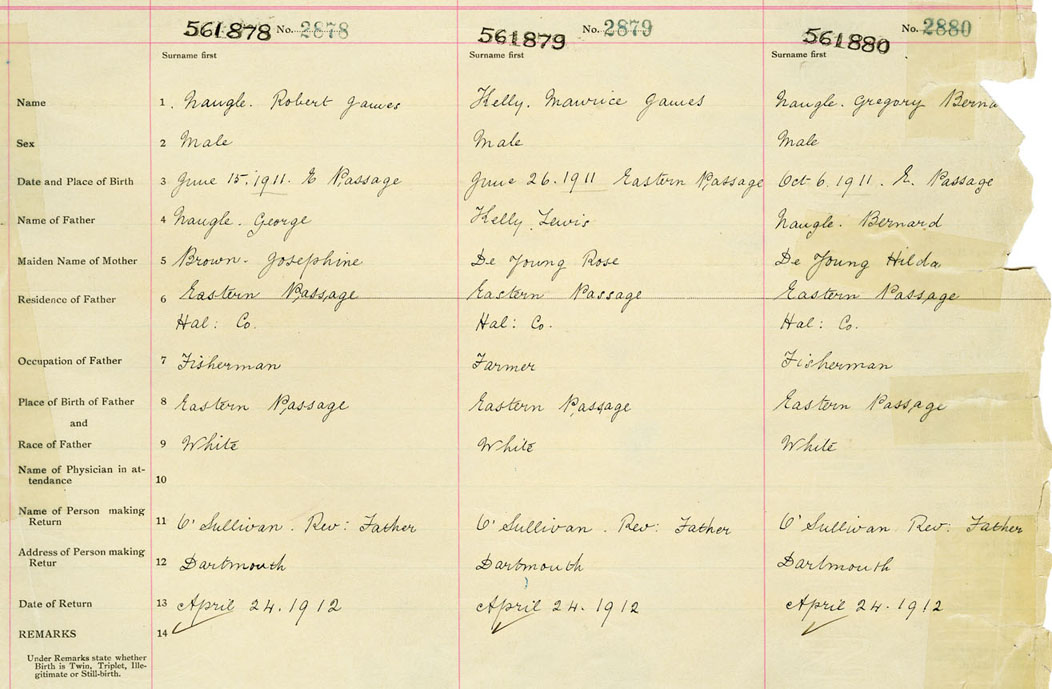 561878 No. 2878 561879 No. 2879 561880 No. 2880
Surname first Surname first Surname first
Name 1. Naugle. Robert James Kelly. Maurice James Naugle. Gregory Berna
Sex 2 Male Male Male
Date and Place of Birth 3 June 15, 1911. E Passage June 26. 1911 Eastern Passage Oct 6. 1911. E. Passage
Name of Father 4 Naugle. George Kelly. Lewis Naugle. Bernard
Maiden Name of Mother 5 Brown - Josephine De Young Rose De Young Hilda
Residence of Father 6 Eastern Passage Eastern Passage Eastern Passage
Hal: Co. Hal: Co. Hal: Co.
Occupation of Father 7 Fisherman Farmer Fisherman
Place of Birth of Father 8 Eastern Passage Eastern Passage Eastern Passage
and
Race of Father 9 White White White
Name of Physician in at-
tendance 10
Name of Person making
Return 11 O'Sullivan. Rev: Father O'Sullivan. Rev: Father O'Sullivan. Rev: Father
Address of Person making
Retur 12 Dartmouth Dartmouth Dartmouth
Date of Return 13 April 24. 1912 April 24. 1912 April 24. 1912
REMARKS 14
Under Remarks state whether
Birth is Twin, Triplet, Ille-
gitimate or Still-birth.